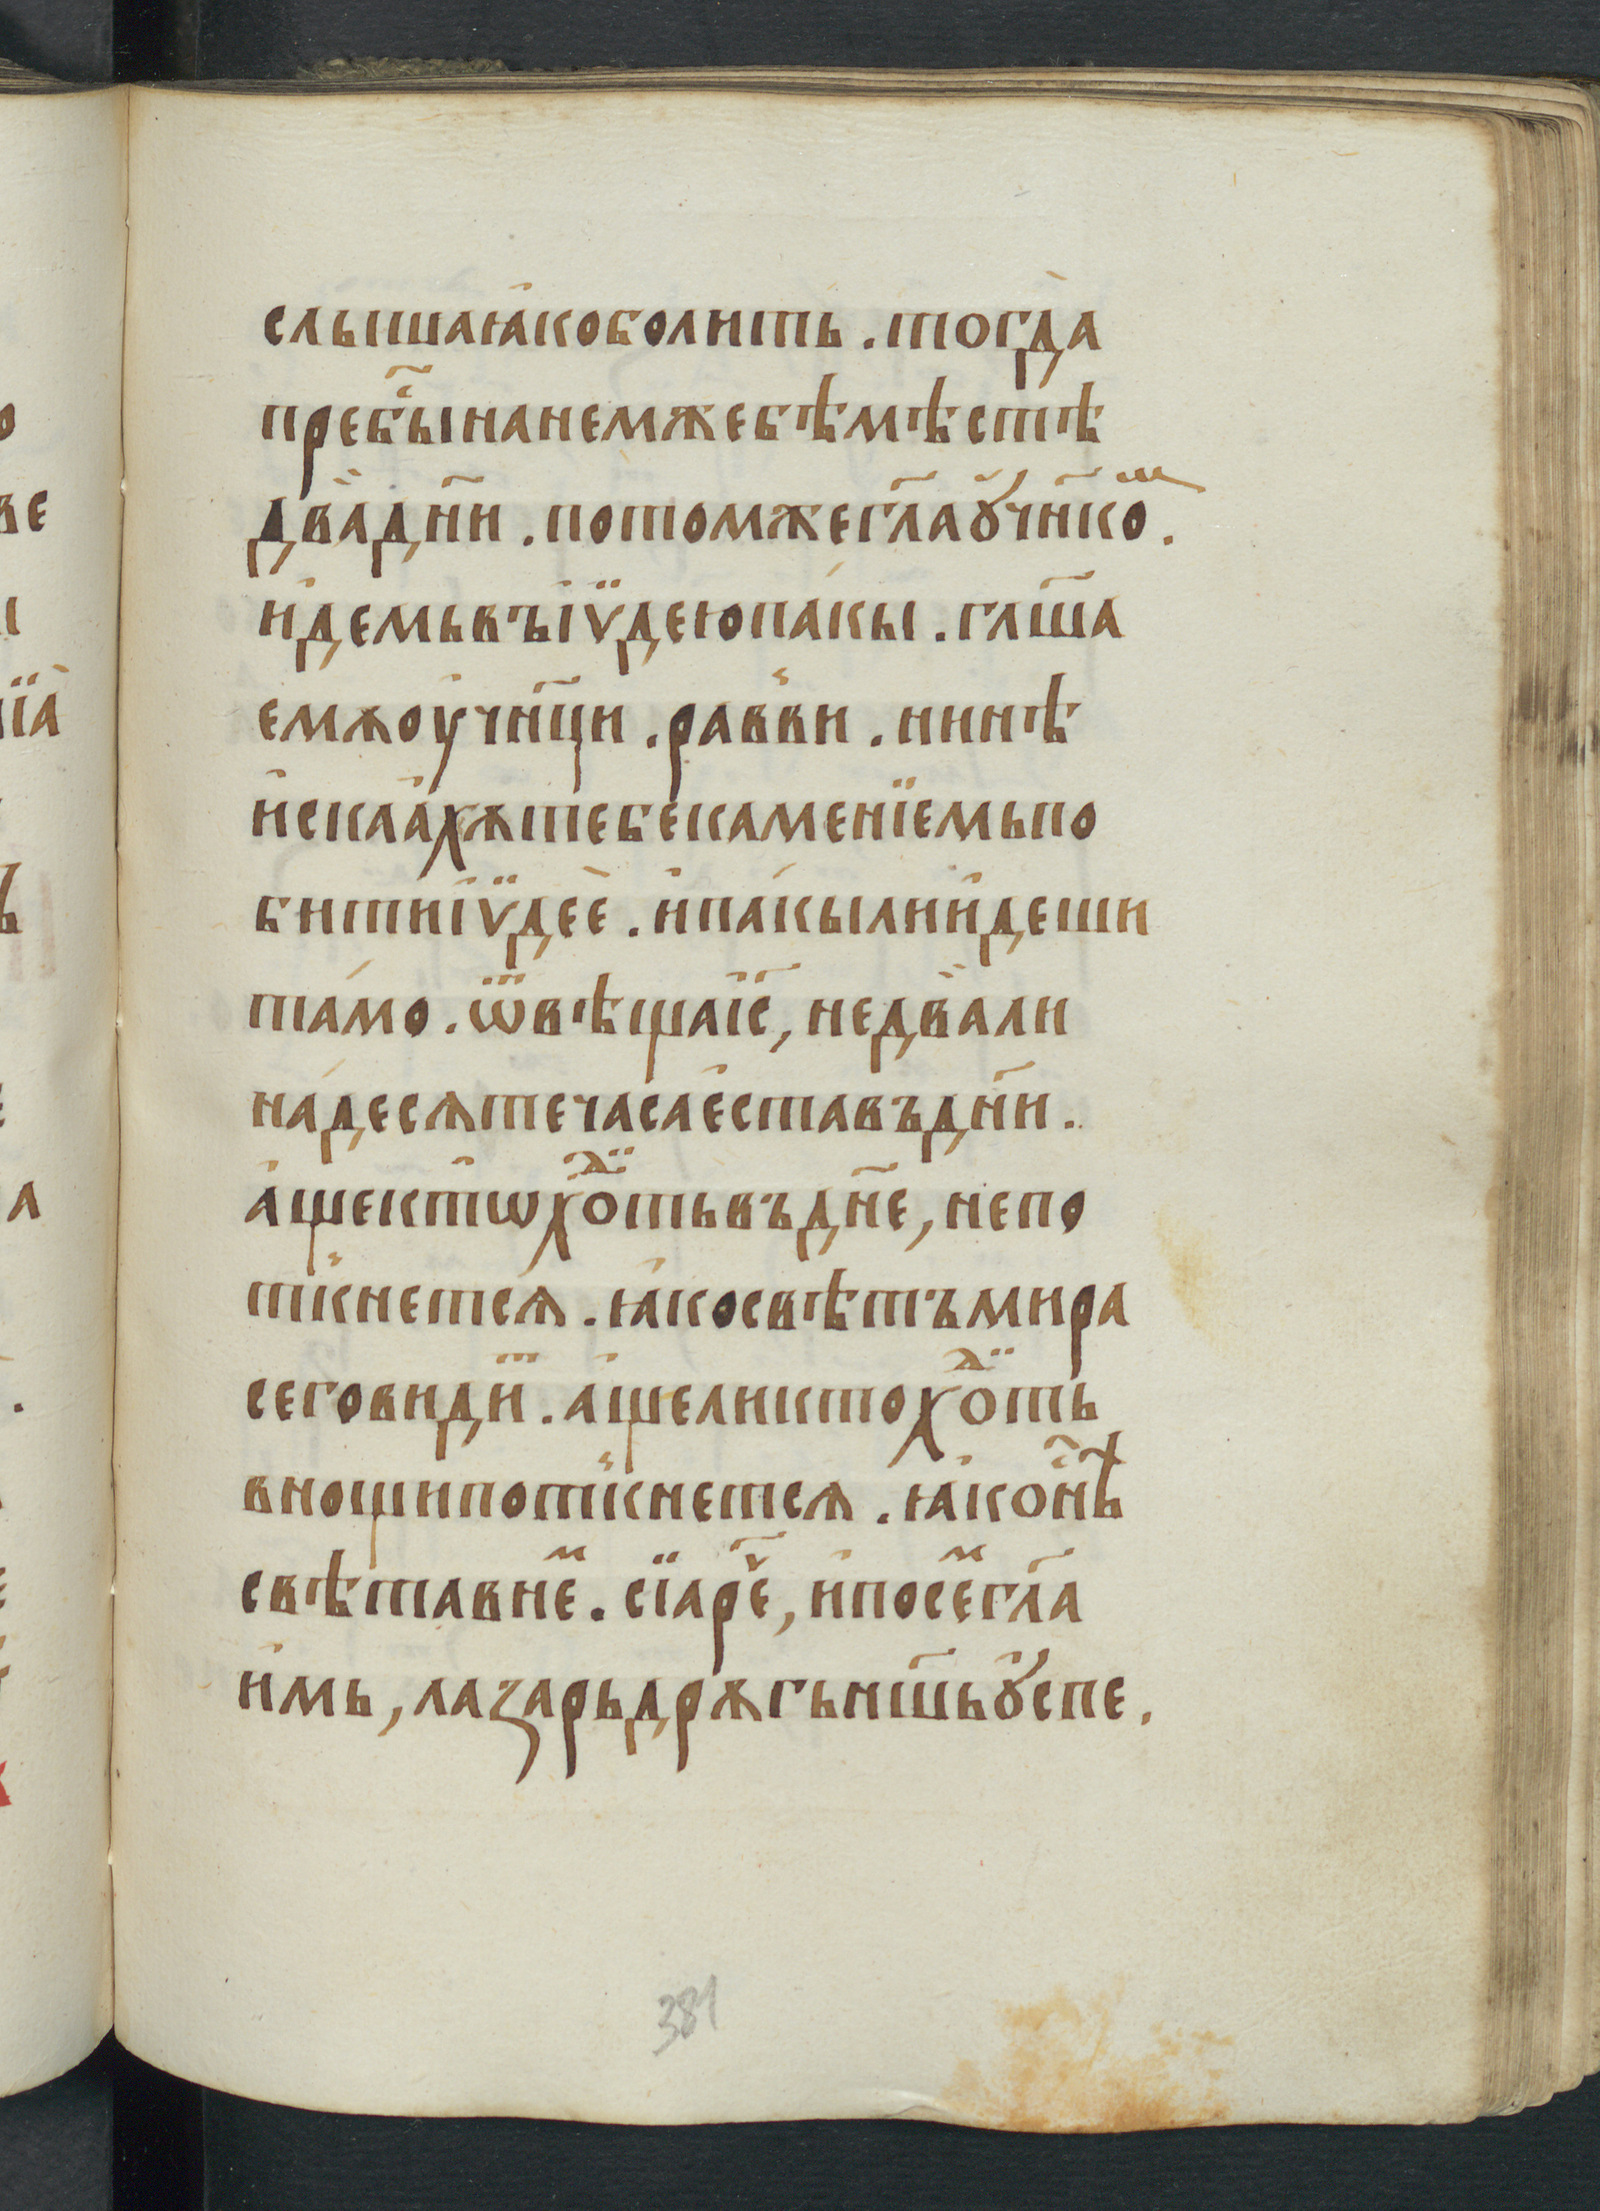 слышаꙗкоболить . тогда
пребы҃нанемжебѣмѣстѣ
двадн҃и . потомжегл҃аꙋчн҃коⷨ .
идемьвъіѵ̈деюпакы . глш҃а
емѫоучиц҃и . равви . нинѣ
искаахѫтебекаменїемьпо
битиіѵ̈дее . ипакылиидеши
тамо . ѿвѣщаі҃с , недвали
надесѧтечасаеставъдн҃и .
ащектѡхоⷣтьвъдн҃е , непо
ткнетсѧ . ꙗкосвѣтъмира
сеговидиⷮ . ащеликтохоⷣть
внощипоткнетсѧ . ꙗконⷭ҇ѣ
свѣтавнеⷨ . сїареⷱ҇ , ипосеⷨгл҃а
имь , лазарьдрѫгьнш҃ьꙋспе .
381